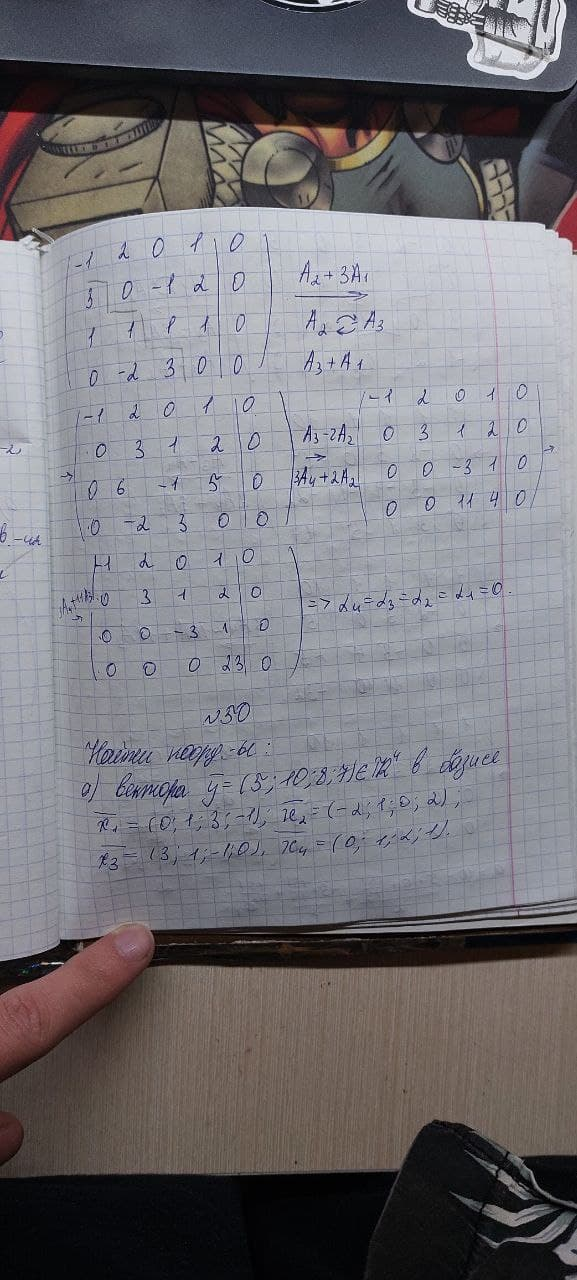 -1 2 0 1 | 0
3 0 -1 2 | 0
1 1 1 1 | 0
0 -2 3 0 | 0
A₂+3A₁
→
A₂ ⇄ A₃
A₃+A₁
→ -1 2 0 1 | 0
0 3 1 2 | 0
0 6 -1 5 | 0
0 -2 3 0 | 0
A₃-2A₂
→
3A₄+2A₂
-1 2 0 1 | 0
0 3 1 2 | 0
0 0 -3 1 | 0
0 0 11 4 | 0 →
→ -1 2 0 1 | 0
0 3 1 2 | 0
0 0 -3 1 | 0
0 0 0 23 | 0
=> α₄=α₃=α₂=α₁=0.
№30
Найти коорд-ы:
а) вектора y̅=(5;10;8;7)∈ℝ⁴ в базисе
x̅₁=(0;1;3;-1); x̅₂=(-2;1;0;2);
x̅₃=(3;1;-1;0), x̅₄=(0;1;2;1).